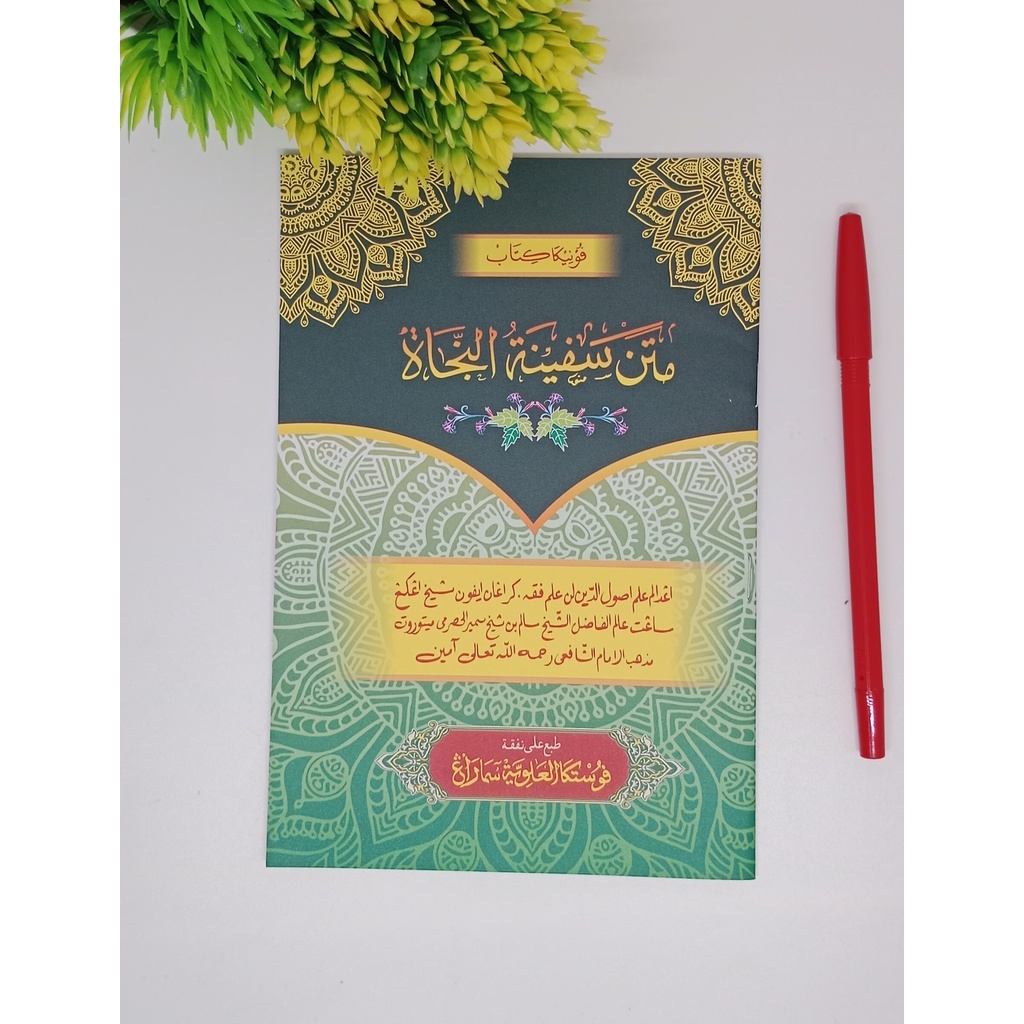 فونيكا كتاب
متن سفينة النجاة
اڠدالم علم اصول الدّين لن علم فقه. كراڠان ايفون شيخ اڠكڠ
ساڠت عالم الفاضل الشّيخ سالم بن شيخ سمير الحضرمى ميتوروت
مذهب الامام الشّافعى رحمه الله تعالى آمين
طبع على نفقة
فوستكا العلويّة سماراڠ